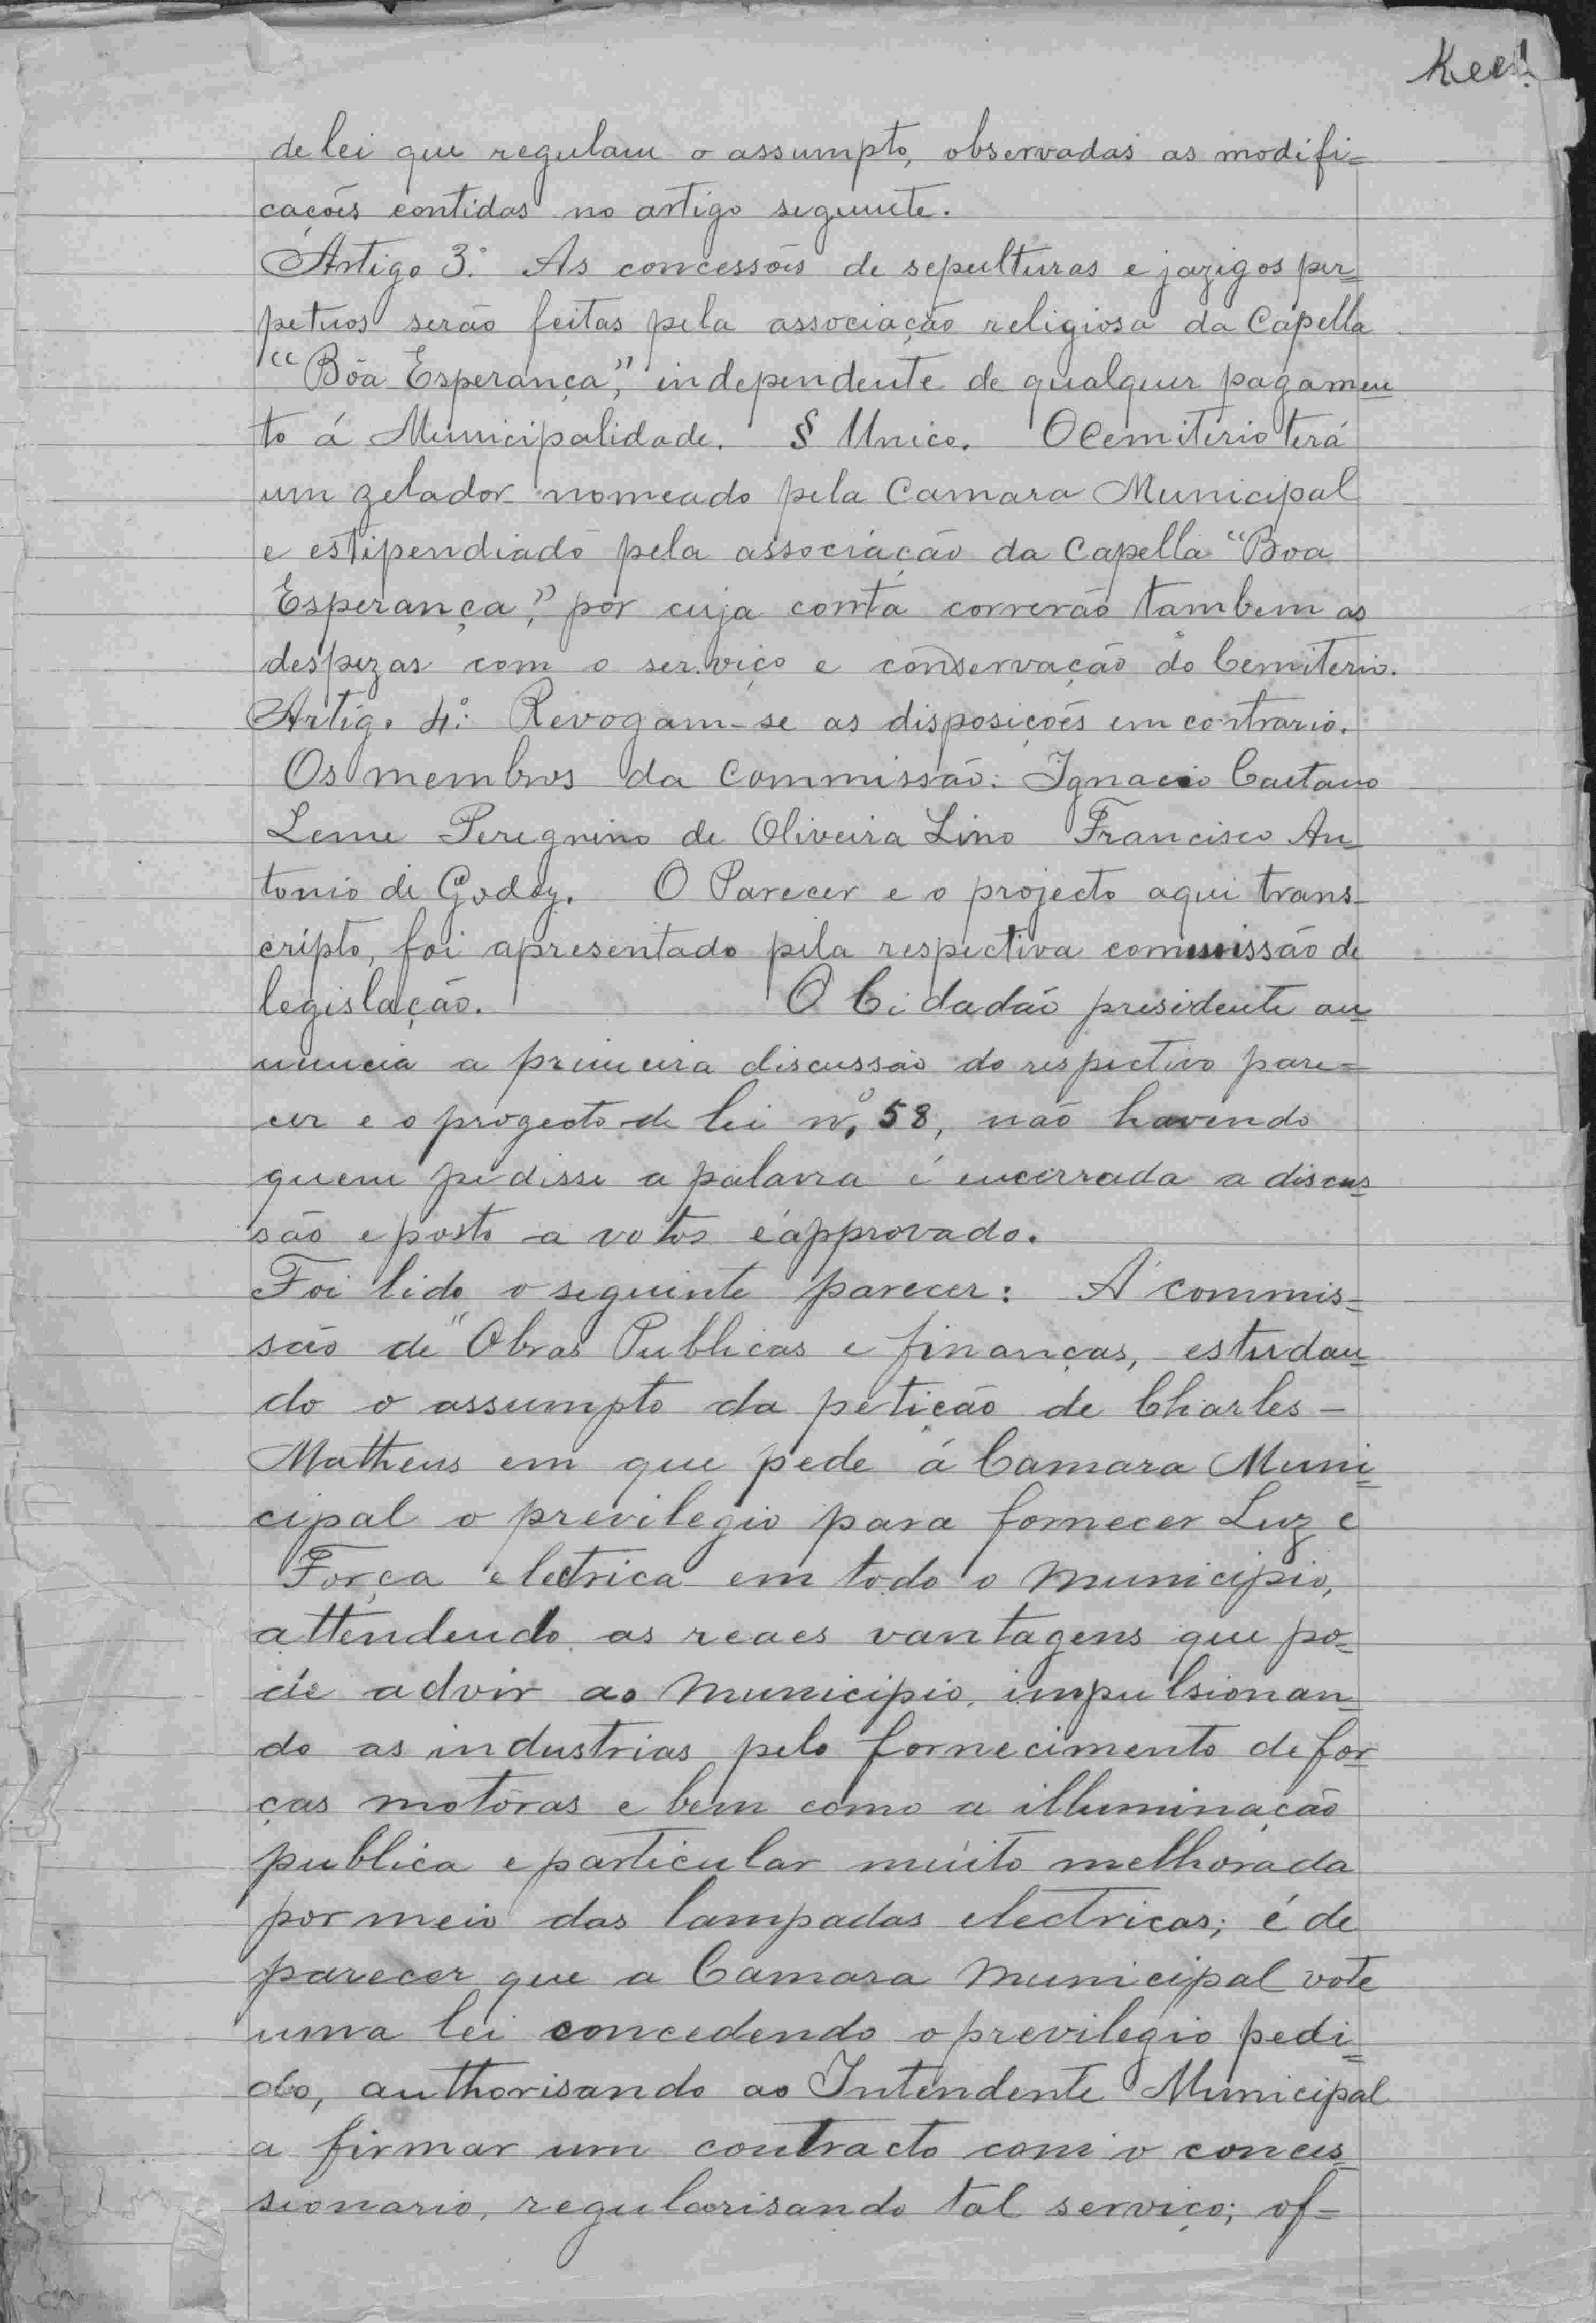 de lei que regulam o assumpto, observadas as modifi=
cações contidas no artigo seguinte.
Artigo 3º. As concessões de sepulturas e jazigos per=
petuos serão feitas pela associação religiosa da Capella
"Bôa Esperança", independente de qualquer pagamen
to á Municipalidade. § Unico. O Cemiterio terá
um zelador nomeado pela Camara Municipal
e estipendiado pela associação da Capella "Boa
Esperança", por cuja conta correrão tambem as
despezas com o serviço e conservação do Cemiterio.
Artigo 4º: Revogam-se as disposições em contrario.
Os membros da Commissão: Ignacio Caetano
Leme Peregrino de Oliveira Lino Francisco An=
tonio de Godoy. O Parecer e o projecto aqui trans=
cripto, foi apresentado pela respectiva commissão de
legislação. O Cidadão presidente an
nuncia a primeira discussão do respectivo pare=
cer e o progecto de lei nº. 58, não havendo
quem pedisse a palavra é encerrada a discus
são e posto a votos é approvado.
Foi lido o seguinte parecer: A commis=
são de "Obras Publicas e finanças, estudan
do o assumpto da petição de Charles -
Matheus em que pede á Camara Muni=
cipal o previlegio para fornecer Luz e
Força electrica em todo o municipio,
attendendo as reaes vantagens que po=
de advir ao municipio, impulsionan=
do as industrias pelo fornecimento de for
ças motôras e bem como a illuminação
publica e particular muito melhorada
por meio das lampadas electricas; é de
parecer que a Camara municipal vote
uma lei concedendo o previlegio pedi=
do, authorisando ao Intendente Municipal
a firmar um contracto com o conces=
sionario, regularisando tal serviço; of=